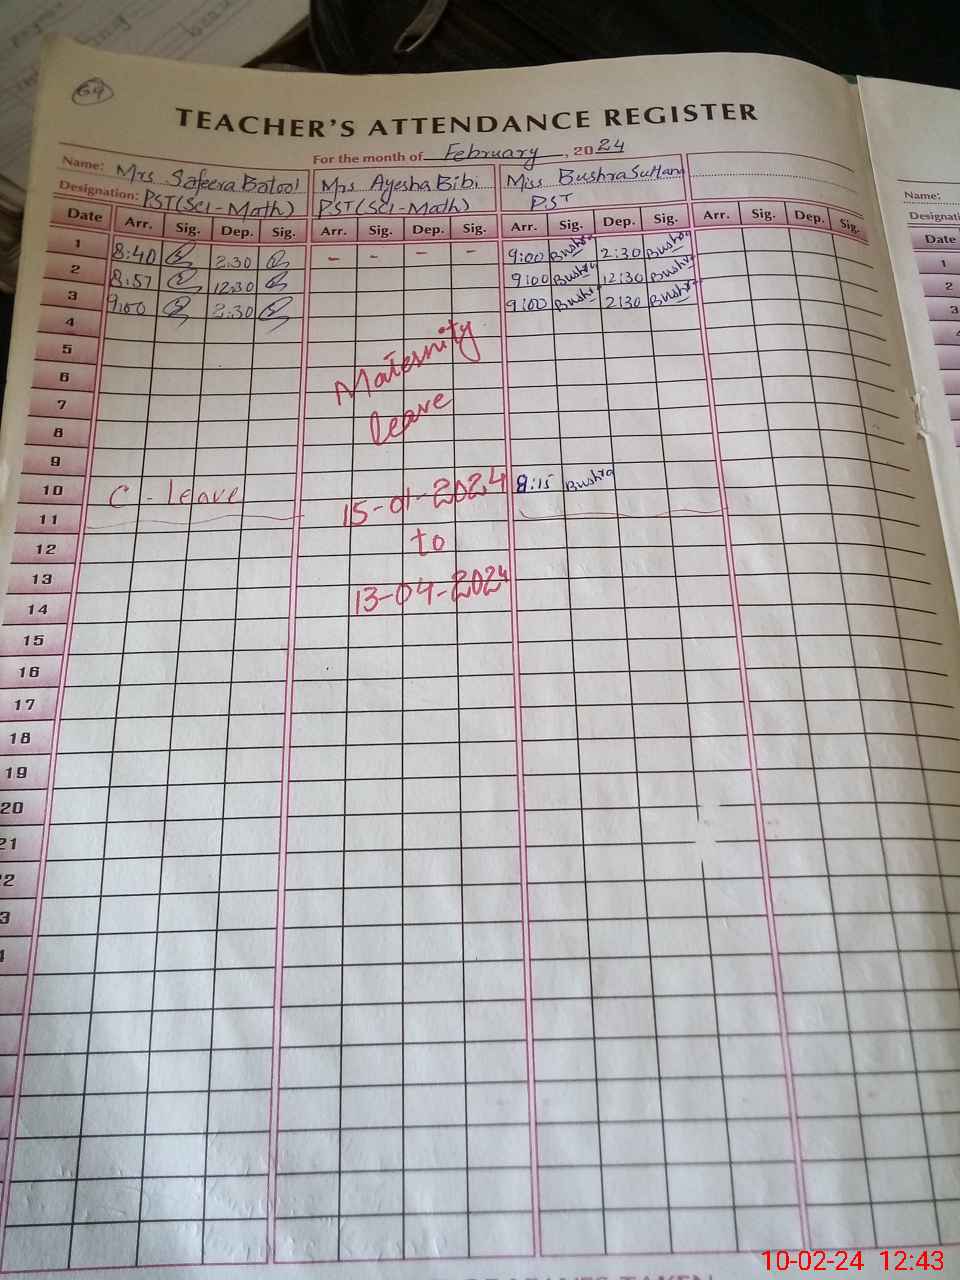 64
TEACHER'S ATTENDANCE REGISTER
For the month of February, 2024
Name: Mrs Safeera Batool Mrs Ayesha Bibi Miss Bushra Sultana
Designation: PST(Sci-Math) PST(Sci-Math) PST
Date Arr. Sig. Dep. Sig. Arr. Sig. Dep. Sig. Arr. Sig. Dep. Sig. Arr. Sig. Dep. Sig.
1 8:40 2:30 - - - - 9:00 Bushra 2:30 Bushra
2 8:57 12:30 9:00 Bushra 12:30 Bushra
3 9:00 2:30 9:00 Bushra 2:30 Bushra
4
5
6 Maternity
7
8 leave
9
10 C - Leave 15-01-2024 8:15 Bushra
11
12 to
13
14 13-04-2024
15
16
17
18
19
20
21
22
3
4
Name:
Designati
Date
1
2
3
10-02-24 12:43